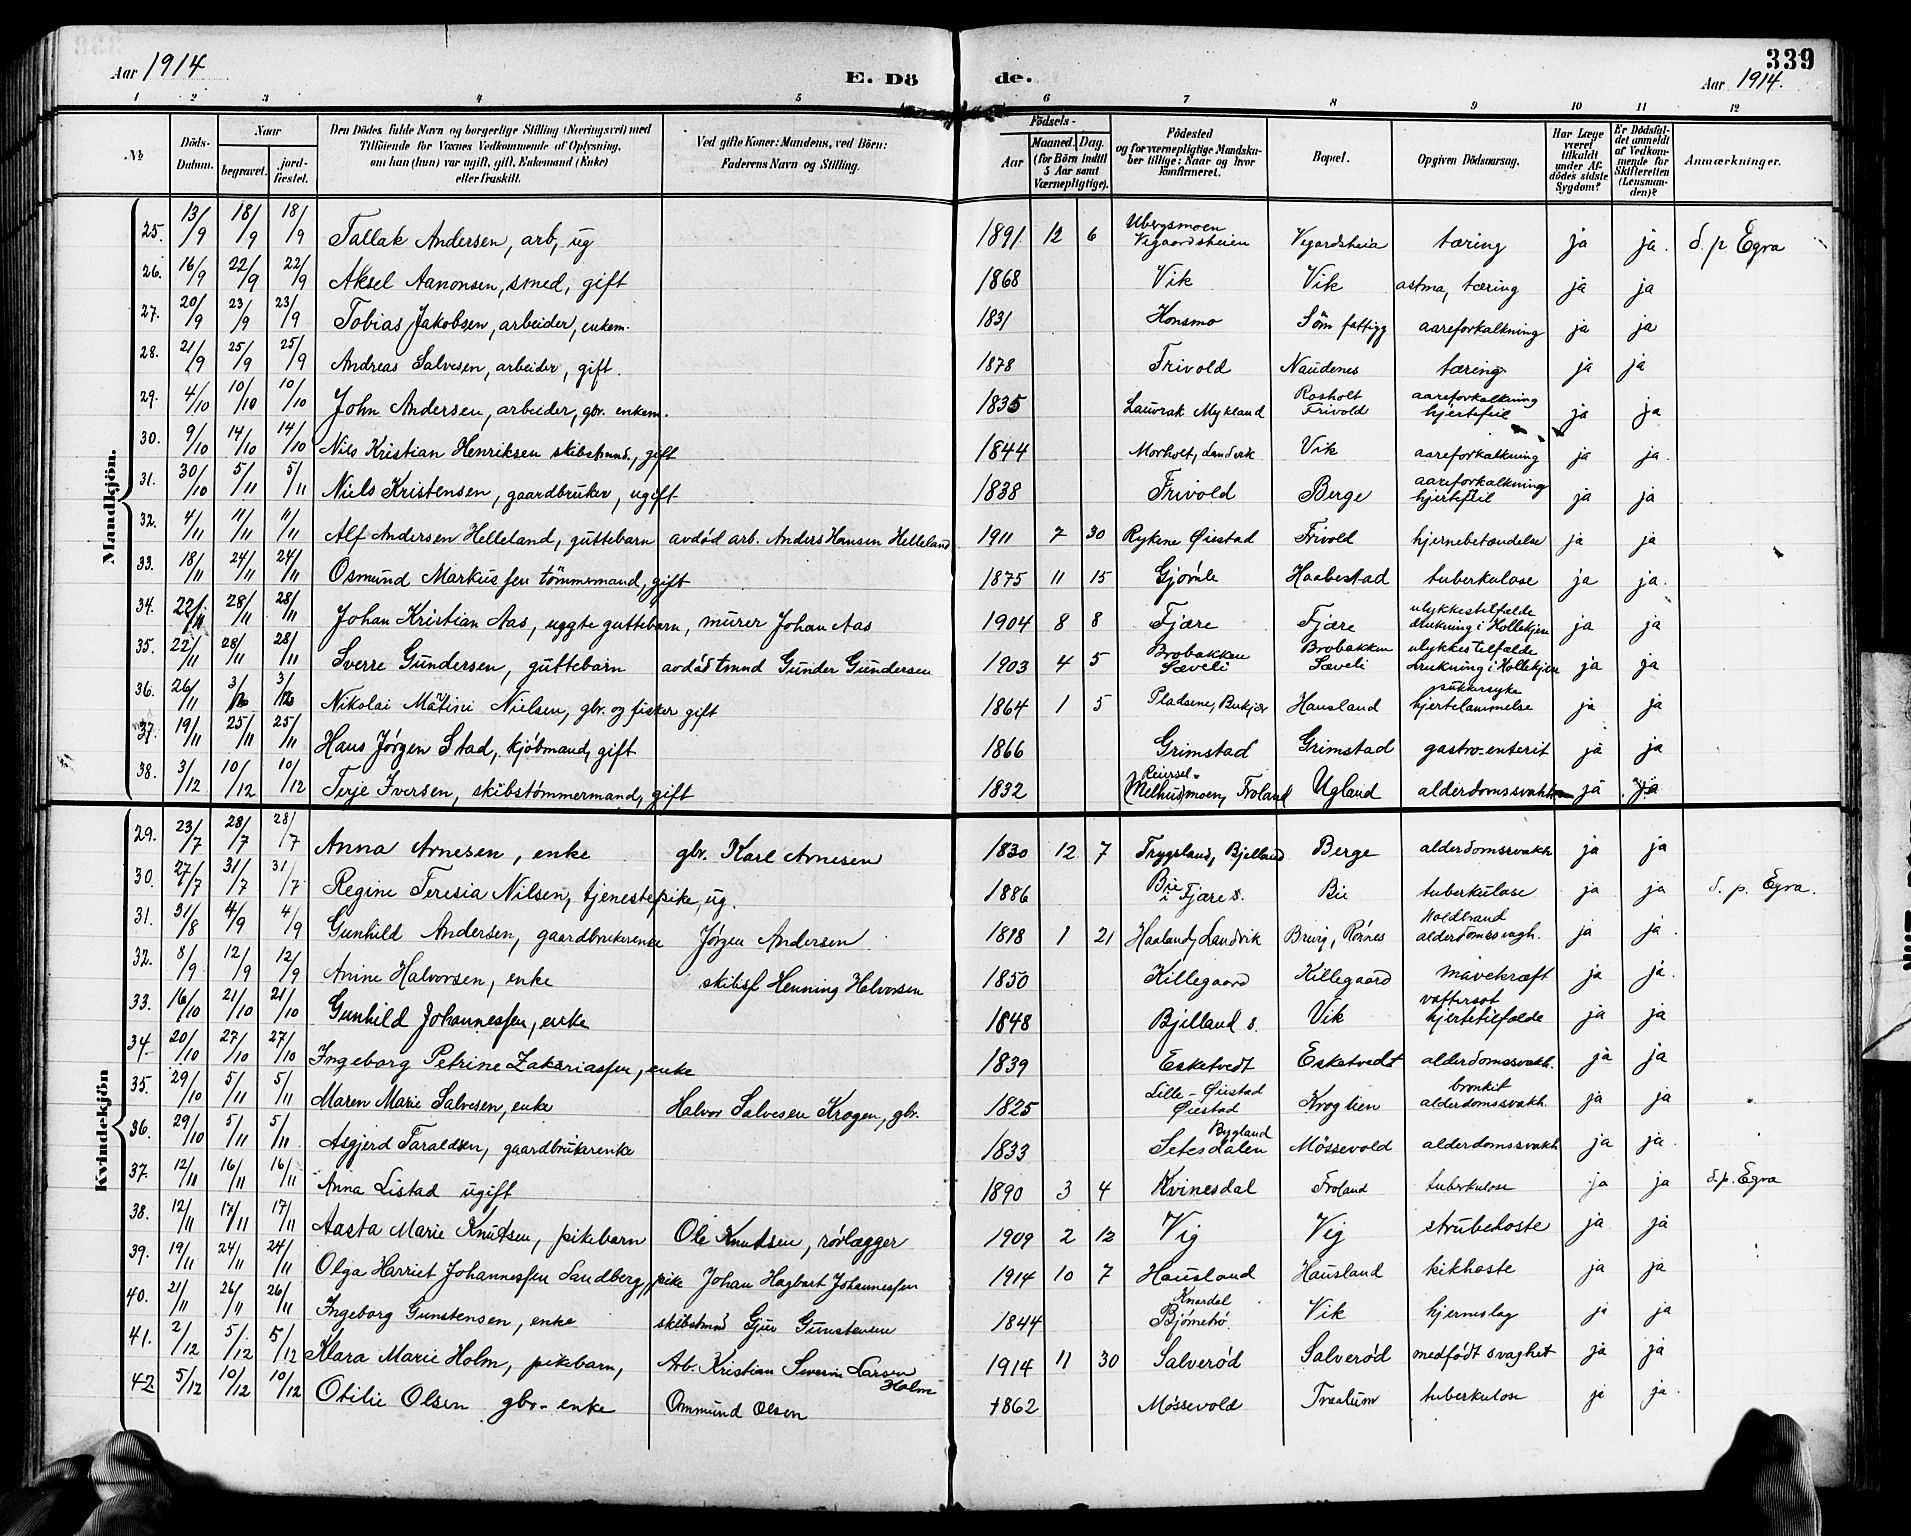 339
Aar 1914
E. Dö
de.
Aar 1914.
1 2 3 4 5 6 7 8 9 10 11 12
No. Döds-Datum. Naar begravet. jord-fæstet. Den Dödes fulde Navn og borgerlige Stilling (Næringsvei) med Tilföiende for Voxnes Vedkommende af Oplysning, om han (hun) var ugift, gift, Enkemand (Enke) eller fraskilt. Ved gifte Koner: Mandens, ved Börn: Faderens Navn og Stilling.
Födsels- Aar Maaned. Dag. (for Börn indtil 5 Aar samt Værnepligtige). Födested og for værnepligtige Mandskaber tillige: Naar og hvor konfirmeret. Bopæl. Opgiven Dödsaarsag. Har Læge været tilkaldt under Afdödes sidste Sygdom? Er Dödsfaldet anmeldt af Vedkommende for Skifteretten (Lensmanden)? Anmærkninger.
Mandkjön.
25. 13/9 18/9 18/9 Tallak Andersen, arb, ug 1891 12 6 Ubergsmoen Vegaardsheien Vegardsheia tæring ja ja. d. p Egra
26. 16/9 22/9 22/9 Aksel Aanonsen, smed, gift 1868 Vik Vik astma, tæring ja ja
27. 20/9 23/9 23/9 Tobias Jakobsen, arbeider, enkem. 1831 Konsmo Söm fattigg aareforkalkning ja ja
28. 21/9 25/9 25/9 Andreas Salvesen, arbeider, gift. 1878 Frivold Naudenes tæring ja ja
29. 4/10 10/10 10/10 John Andersen, arbeider, gbr. enkem. 1835 Laurak Mykland Rosholt Frivold aareforkalkning hjertefeil ja ja
30. 9/10 14/10 14/10 Nils Kristian Henriksen skibstmnd., gift 1844 Morholt, Landvik Vik aareforkalkning ja ja.
31. 30/10 5/11 5/11 Niels Kristensen, gaardbruker, ugift 1838 Frivold Berge aareforkalkning hjertefeil ja ja
32. 4/11 11/11 11/11 Alf Andersen Helleland, guttebarn avdød arb. Anders Hansen Helleland 1911 7 30 Rykene Øiestad Frivold hjernebetændelse ja ja
33. 18/11 24/11 24/11 Osmund Markussen tömmermand, gift 1875 11 15 Gjømle Haabestad tuberkulose ja ja.
34. 22/11 28/11 28/11 Johan Kristian Aas, uggte guttebarn, murer Johan Aas 1904 8 8 Fjære Fjære ulykkestilfælde drukning i Hollekjen ja ja
35. 22/11 28/11 28/11 Sverre Gundersen, guttebarn avdød tmnd Gunder Gundersen 1903 4 5 Brobakken Sæveli Brobakken Sæveli ulykkestilfælde drukning i Hollekjen ja ja
36. 26/11 3/12 3/12 Nikolai Matini Nielsen, gbr. og fisker gift 1864 1 5 Pladsene, Bukjær Hausland sukkersyke hjertelammelse ja ja
37. 19/11 25/11 25/11 Hans Jørgen Stad, kjöbmand, gift 1866 Grimstad Grimstad gastro-enterit ja ja
38. 3/12 10/12 10/12 Terje Iversen, skibstømmermand, gift 1832 Reiersel- (Melhus)moen, Froland Ugland alderdomssvakh ja ja
Kvindekjön
29. 23/7 28/7 28/7 Anna Arnesen, enke gbr. Karl Arnesen 1830 12 7 Trygsland, Bjelland Berge alderdomssvakh ja ja
30. 27/7 31/7 31/7 Regine Teresia Nilsen, tjenestepike, ug. 1886 Bie i Fjære s. Bie tuberkulose ja ja d. p. Egra.
31. 31/8 4/9 4/9 Gunhild Andersen, gaardbrukerenke Jørgen Andersen 1818 1 21 Haaland, Landvik Bruvig, Rønnes Koldbrand alderdomssvagh. ja ja
32. 8/9 12/9 12/9 Anine Halvorsen, enke skibsf Henning Halvorsen 1850 Killegaard Killegaard mavekræft ja ja.
33. 16/10 21/10 21/10 Gunhild Johannessen, enke 1848 Bjelland s. Vik vattersot hjertetilfælde ja ja
34. 20/10 27/10 27/10 Ingeborg Petrine Zakariassen, enke 1839 Esketvedt Esketvedt alderdomssvakh. ja ja
35. 29/10 5/11 5/11 Maren Marie Salvesen, enke Halvor Salvesen Krogen, gbr. 1825 Lille-Øiestad Øiestad Kroglien bronkit alderdomssvakh. ja ja
36. 29/10 5/11 5/11 Asgjerd Taraldsen, gaardbrukerenke 1833 Bygland Setesdalen Mössevold alderdomssvakh ja ja.
37. 12/11 16/11 16/11 Anna Listad ugift 1890 3 4 Kvinesdal Froland tuberkulose ja ja d. p. Egra
38. 12/11 17/11 17/11 Aasta Marie Knutsen, pikebarn Ole Knutsen, rørlægger 1909 2 12 Vig Vig strubehoste ja ja
39. 19/11 24/11 24/11 Olga Harriet Johannessen Sandberg, pike Johan Hagbart Johannessen 1914 10 7 Hausland Hausland kikhoste ja ja
40. 21/11 26/11 26/11 Ingeborg Gunstensen, enke skibstmnd Gjur Gunstensen 1844 Knardal Vik hjerneslag ja ja
41. 2/12 5/12 5/12 Klara Marie Holm, pikebarn, Arb. Kristian Severin Larsen Holm 1914 11 30 Salverød Salverød medfødt svaghet ja ja
42 5/12 10/12 10/12 Otilie Olsen gbr-enke Ommund Olsen 1862 Møssevold Træalum tuberkulose ja ja.